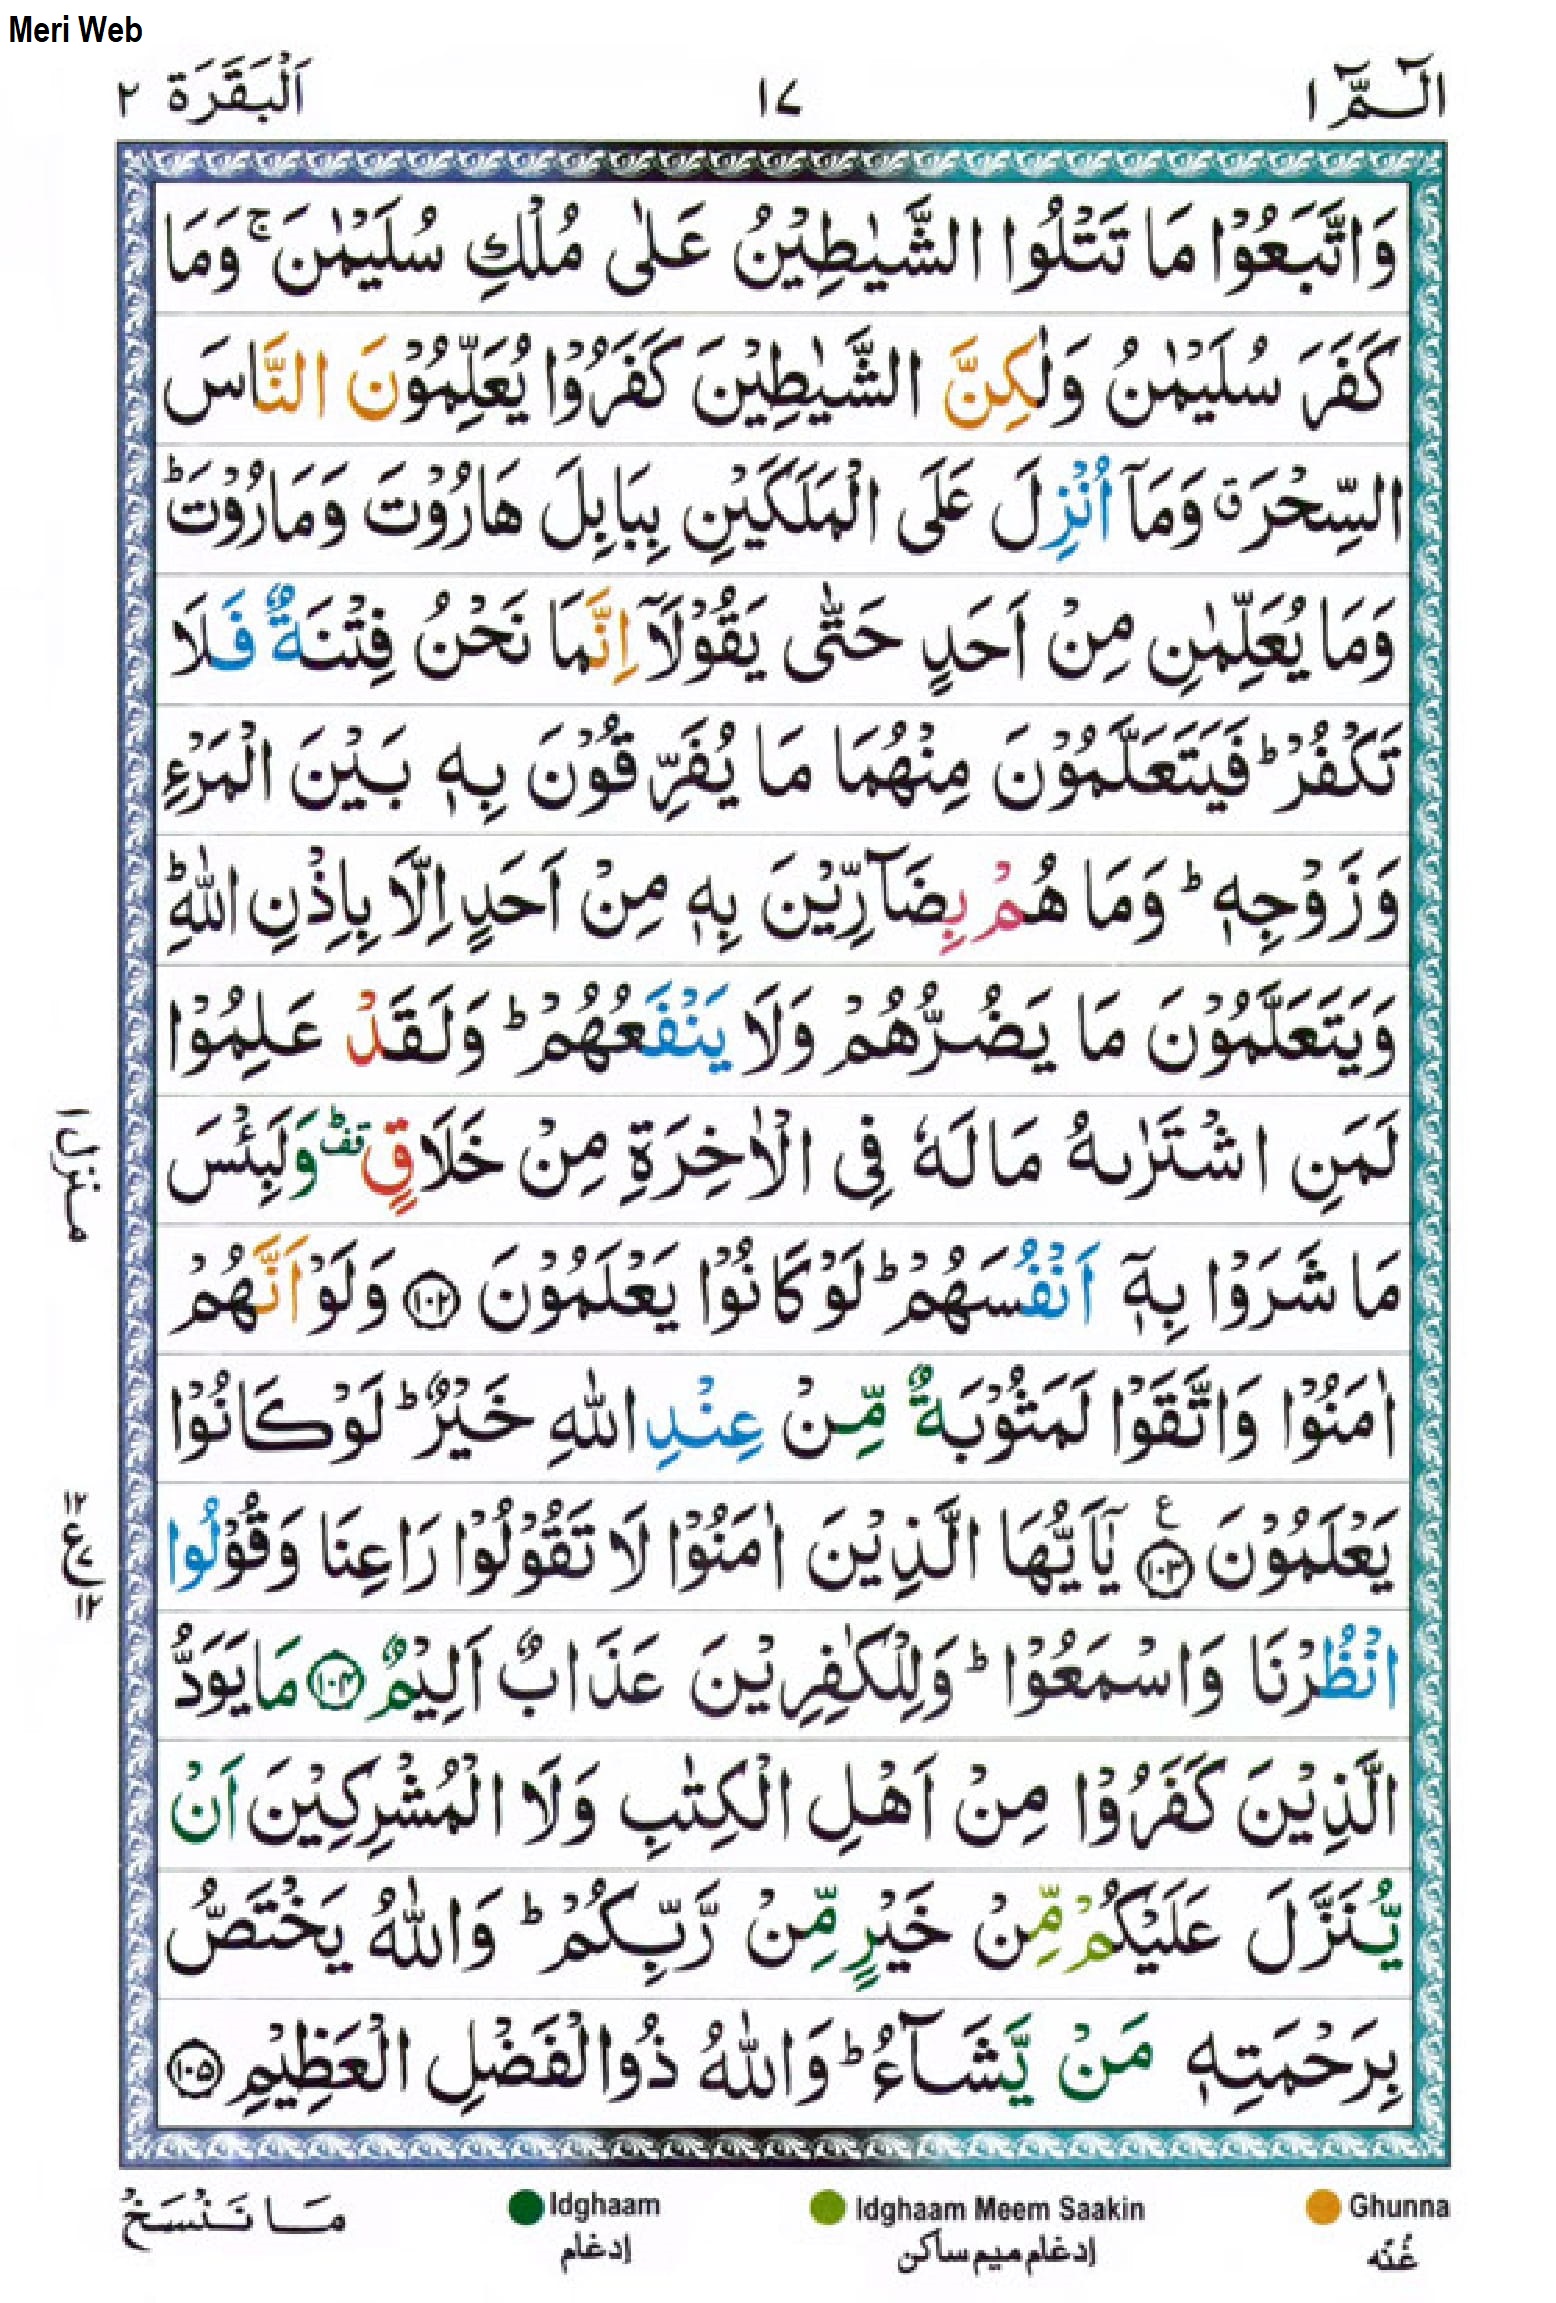 Meri Web
الٓمّٓ ١
١٧
اَلْبَقَرَة ٢
وَاتَّبَعُوْا مَا تَتْلُوا الشَّيٰطِيْنُ عَلٰى مُلْكِ سُلَيْمٰنَ ۚ وَمَا
كَفَرَ سُلَيْمٰنُ وَلٰكِنَّ الشَّيٰطِيْنَ كَفَرُوْا يُعَلِّمُوْنَ النَّاسَ
السِّحْرَ ق وَمَآ اُنْزِلَ عَلَى الْمَلَكَيْنِ بِبَابِلَ هَارُوْتَ وَمَارُوْتَ ؕ
وَمَا يُعَلِّمٰنِ مِنْ اَحَدٍ حَتّٰى يَقُوْلَآ اِنَّمَا نَحْنُ فِتْنَةٌ فَلَا
تَكْفُرْ ؕ فَيَتَعَلَّمُوْنَ مِنْهُمَا مَا يُفَرِّقُوْنَ بِهٖ بَيْنَ الْمَرْءِ
وَزَوْجِهٖ ؕ وَمَا هُمْ بِضَآرِّيْنَ بِهٖ مِنْ اَحَدٍ اِلَّا بِاِذْنِ اللّٰهِ ؕ
وَيَتَعَلَّمُوْنَ مَا يَضُرُّهُمْ وَلَا يَنْفَعُهُمْ ؕ وَلَقَدْ عَلِمُوْا
لَمَنِ اشْتَرٰىهُ مَا لَهٗ فِى الْاٰخِرَةِ مِنْ خَلَاقٍ ؕ قف وَلَبِئْسَ
مَا شَرَوْا بِهٖٓ اَنْفُسَهُمْ ؕ لَوْ كَانُوْا يَعْلَمُوْنَ ١٠٢ وَلَوْ اَنَّهُمْ
اٰمَنُوْا وَاتَّقَوْا لَمَثُوْبَةٌ مِّنْ عِنْدِ اللّٰهِ خَيْرٌ ؕ لَوْ كَانُوْا
يَعْلَمُوْنَ ١٠٣ ع يٰٓاَيُّهَا الَّذِيْنَ اٰمَنُوْا لَا تَقُوْلُوْا رَاعِنَا وَقُوْلُوا
انْظُرْنَا وَاسْمَعُوْا ؕ وَلِلْكٰفِرِيْنَ عَذَابٌ اَلِيْمٌ ١٠٤ مَا يَوَدُّ
الَّذِيْنَ كَفَرُوْا مِنْ اَهْلِ الْكِتٰبِ وَلَا الْمُشْرِكِيْنَ اَنْ
يُّنَزَّلَ عَلَيْكُمْ مِّنْ خَيْرٍ مِّنْ رَّبِّكُمْ ؕ وَاللّٰهُ يَخْتَصُّ
بِرَحْمَتِهٖ مَنْ يَّشَآءُ ؕ وَاللّٰهُ ذُو الْفَضْلِ الْعَظِيْمِ ١٠٥
منزل ١
١٢
ع ٧
١٢
Ghunna
غُنّه
Idghaam Meem Saakin
إدغام ميم ساكن
Idghaam
إدغام
مَا نَنْسَخْ